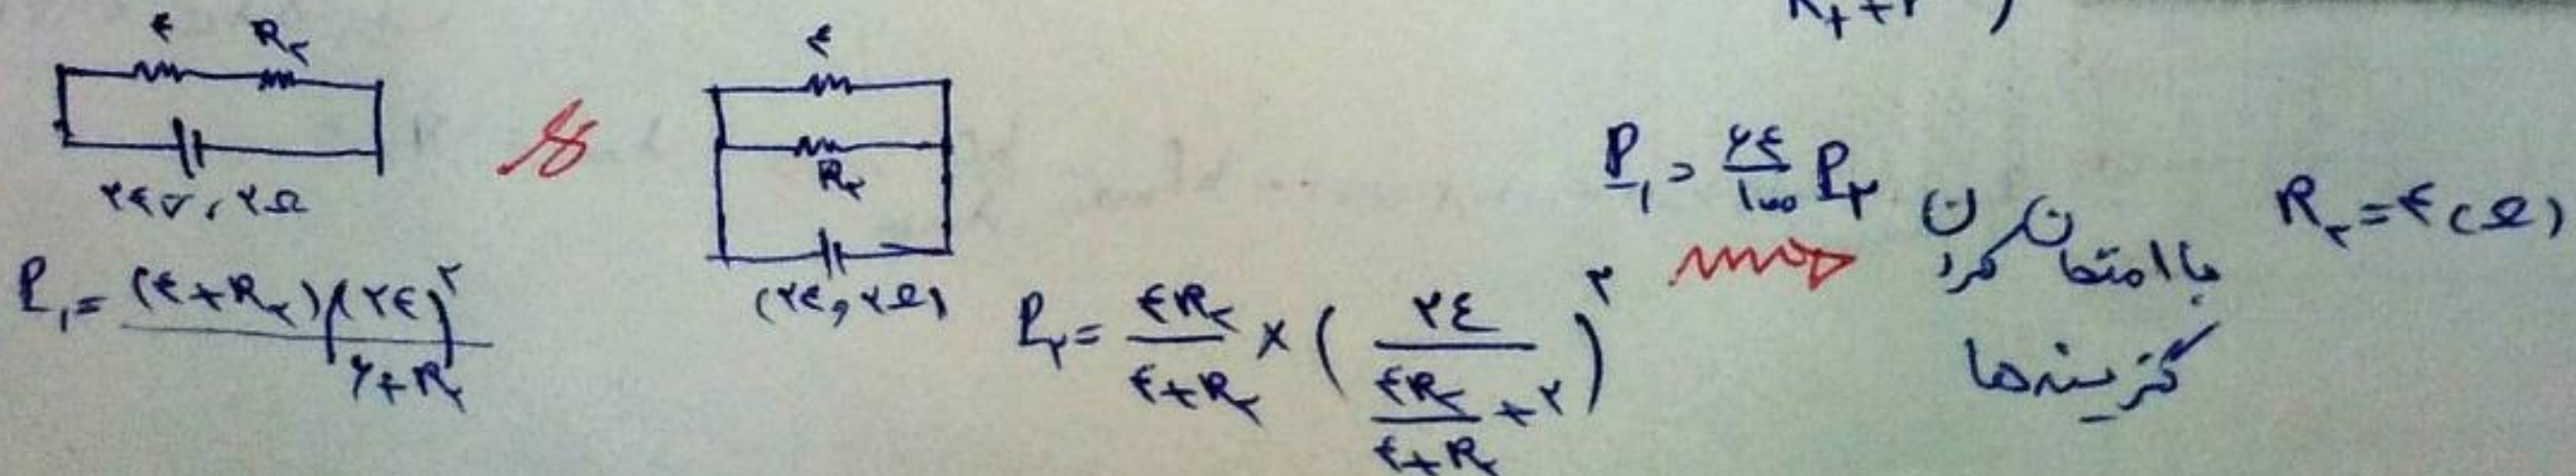 R₂+r )
۴ R₂
۲۴v, ۲Ω
P₁ = (۴+R₂)(۲۴/۶+R₂)^۲
۴
R₂
(۲۴, ۲Ω)
P₂ = ۴R₂/۴+R₂ × (۲۴/(۴R₂/۴+R₂ + ۲))^۲
P₁ = ۶۴/۱۰۰ P₂
با امتحان کردن
گزینه‌ها
R₂ = ۴(Ω)